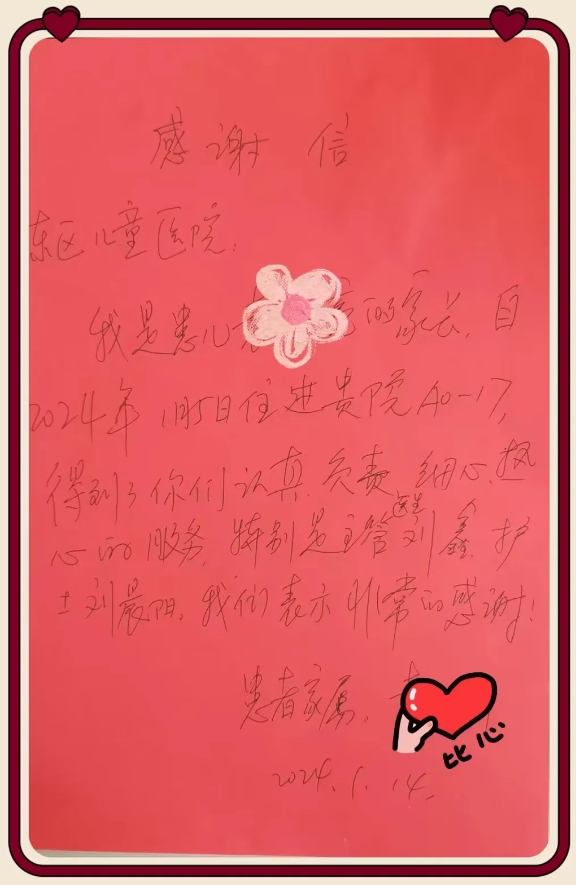 感谢信
东区儿童医院:
我是患儿 的家长,自
2024年1月5日住进贵院A0-17,
得到了你们认真、负责、细心、热
心的服务,特别是主管医生刘鑫、护
士刘晨阳,我们表示非常的感谢!
患者家属:
比心
2024.1.14.